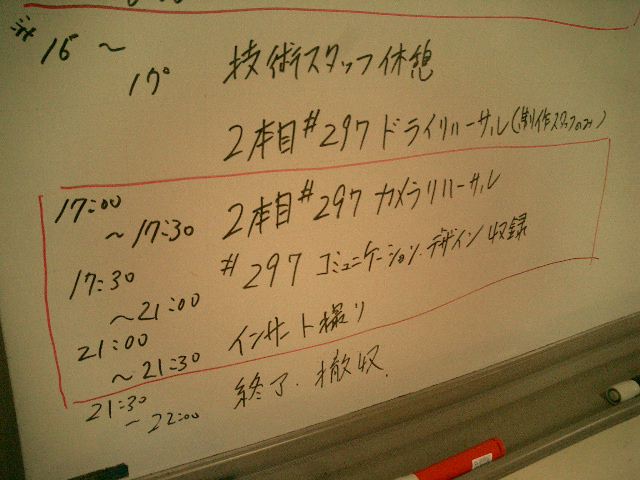 16～
17° 技術スタッフ休憩
2本目#297 ドライリハーサル(制作スタッフのみ)
17:00
～17:30 2本目#297 カメラリハーサル
17:30
～21:00 #297 コミュニケーション・デザイン収録
21:00
～21:30 インサート撮り
21:30
～22:00 終了．撤収．